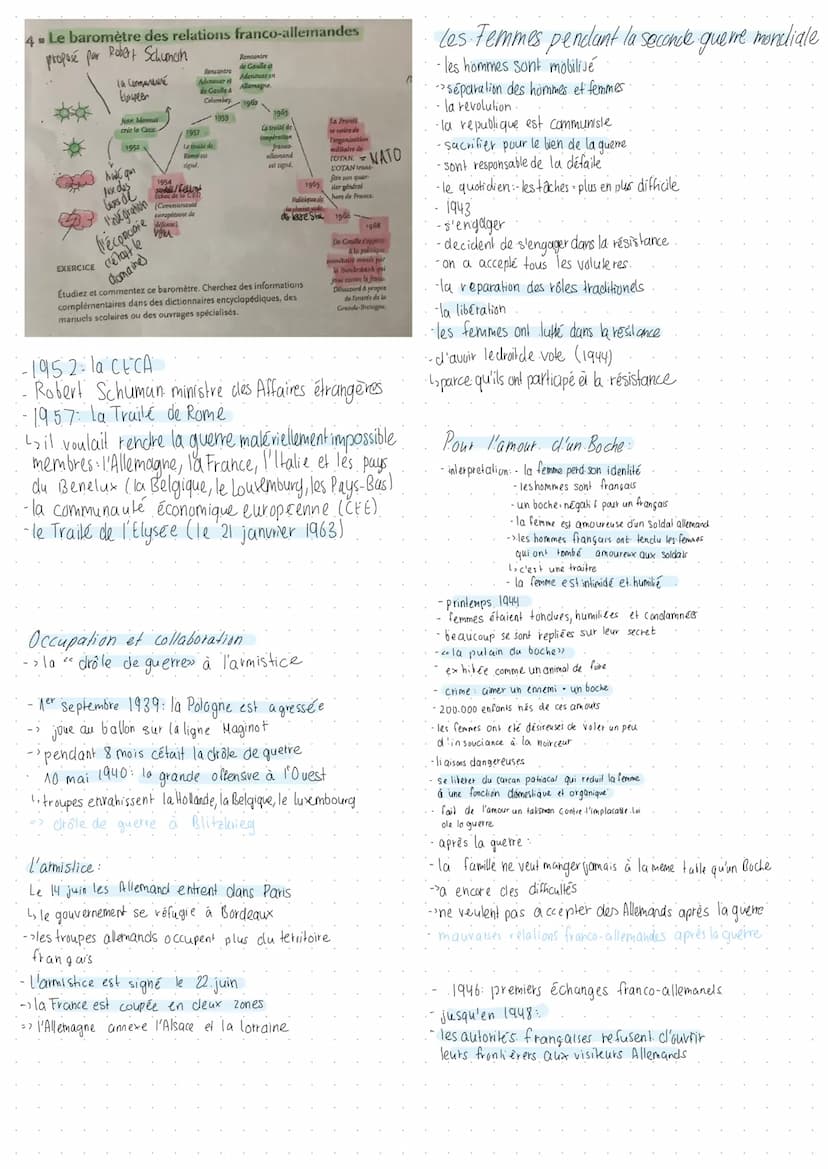 4 ■ Le baromètre des relations franco-allemandes
proposé par Robert Schuman
la Communauté
Européen
Jean Monnet
crée la Ceca.
1952
1957
Le traité de
Rome est
signé.
Rencontre
Adenauer et
de Gaulle à
Colombey.
1959
Rencontre
de Gaulle et
Adenauer en
Allemagne.
1962
1963
Le traité de
coopération
franco-
allemand
est signé.
1954
Échec de la CED
(Communauté
européenne de
défense)
1965
Politique de
la chaise vide
La France
se retire de
l'organisation
militaire de
l'OTAN. = NATO
L'OTAN trans-
fère son quar-
tier général
hors de France.
1966
1968
De Gaulle s'oppose
à la politique
monétaire menée par
la Bundesbank
Désaccord à propos
de l'entrée de la
Grande-Bretagne.
l'économie
c'était le
domaines
EXERCICE
Étudiez et commentez ce baromètre. Cherchez des informations
complémentaires dans des dictionnaires encyclopédiques, des
manuels scolaires ou des ouvrages spécialisés.
- 1952: la CECA
- Robert Schuman ministre des Affaires étrangères
- 1957: la Traité de Rome
↳ il voulait rendre la guerre matériellement impossible
membres: l'Allemagne, la France, l'Italie et les pays
du Benelux (la Belgique, le Louxemburg, les Pays-Bas)
- la communauté économique européenne (CEE)
- le Traité de l'Elysée (le 21 janvier 1963)
Occupation et collaboration
-> la "drôle de guerre» à l'armistice
- 1er septembre 1939: la Pologne est agressée
-> joue au ballon sur la ligne Maginot
-> pendant 8 mois c'était la drôle de guerre
10 mai 1940: la grande offensive à l'Ouest
↳ troupes envahissent la Hollande, la Belgique, le luxembourg
=> drôle de guerre à Blitzkrieg
L'armistice:
Le 14 juin les Allemand entrent dans Paris
↳ le gouvernement se réfugie à Bordeaux
-> les troupes allemands occupent plus du territoire
français
- L'armistice est signé le 22 juin
-> la France est coupée en deux zones
=> l'Allemagne annexe l'Alsace et la lorraine
Les Femmes pendant la seconde guerre mondiale
- les hommes sont mobilisé
-> séparation des hommes et femmes
- la révolution
- la république est communiste
- sacrifier pour le bien de la guerre
- sont responsable de la défaite
- le quotidien: - les tâches - plus en plus difficile
- 1943
- s'engager
- decident de s'engager dans la résistance
- on a accepté tous les
- la reparation des rôles traditionels
- la libération
- les femmes ont lutté dans la résistance
- d'avoir le droit de vote (1944)
↳ parce qu'ils ont participé à la résistance
Pour l'amour d'un Boche:
- interpretation: - la femme perd son identité
- les hommes sont français
- un boche: négatif pour un français
- la femme est amoureuse d'un Soldat allemand
-> les hommes français ont tendu les femmes
qui ont tombé amoureux aux soldats
↳ c'est une traitre
- la femme est intimidé et humilié
- printemps 1944
- femmes étaient tondues, humiliées et condamnées
- beaucoup se sont repliées sur leur secret
- «la putain du boche»
- exhibée comme un animal de foire
- crime: aimer un ennemi • un boche
- 200.000 enfants nés de ces amours
- les femmes ont été désireuses de voler un peu
d'insouciance à la noirceur
- liaisons dangereuses
- se libérer du carcan patriacal qui reduit la femme
à une fonction domestique et organique
- fait de l'amour un talisman contre l'implacable loi
de la guerre
- après la guerre:
- la famille ne veut manger jamais à la même table qu'un Boche
-> a encore des difficultés
-> ne veulent pas accepter des Allemands après la guerre
- mauvaises relations franco-allemandes après la guerre
- 1946: premiers échanges franco-allemands
- jusqu'en 1948:
- les autorités françaises refusent d'ouvrir
leurs frontières aux visiteurs Allemands